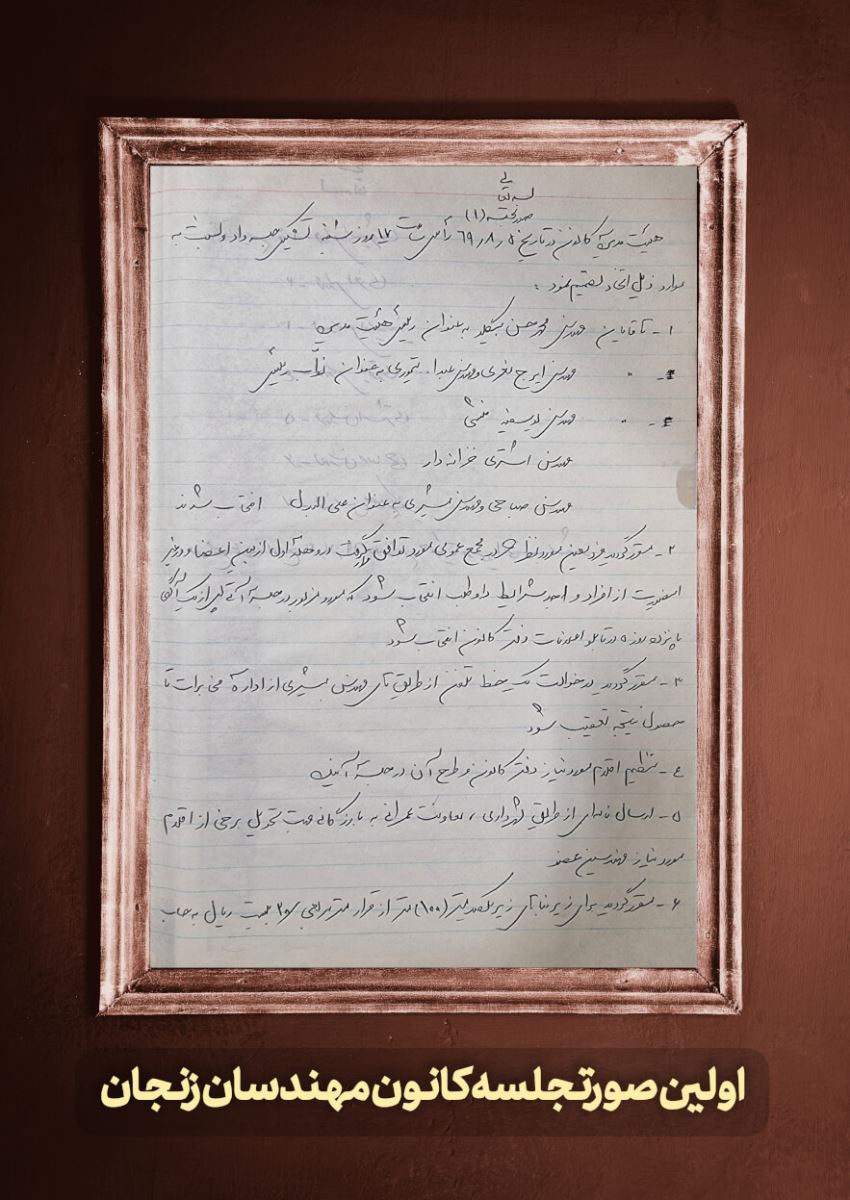 بسمه تعالی
صورتجلسه (۱)
هیئت مدیره کانون در تاریخ ۶۹٫۸٫۵ رأس ساعت ۱۷ روز شنبه تشکیل جلسه داد و نسبت به
موارد ذیل اتخاذ تصمیم نمود :
۱ - آقایان مهندس محمد حسن به عنوان رئیس هیئت مدیره
۲ - " مهندس ایرج و مهندس تیموری به عنوان نواب رئیس
۳ - " مهندس یوسفی منشی
مهندس اشتری خزانه دار
مهندس صباحی و مهندس بشیری به عنوان علی البدل انتخاب شدند
۲ - مقرر گردید مورد نظر که در مجمع عمومی مورد توافق قرار گرفت در وهله اول از بین اعضا و در غیر
اینصورت از افراد واجد شرایط داوطلب انتخاب شود که مورد مزبور در جلسه آتی پس از یک آگهی
پانزده روزه در تابلو اعلانات دفتر کانون انتخاب شود
۳ - مقرر گردید درخواست یک خط تلفن از طریق آقای مهندس بشیری از اداره مخابرات تا
حصول نتیجه تعقیب شود
۴ - تنظیم اقلام مورد نیاز دفتر کانون و طرح آن در جلسه آینده
۵ - ارسال نامه‌ای از طریق شهرداری ، معاونت عمرانی به بازرگانی جهت تحویل برخی از اقلام
مورد نیاز مهندسین عضو
۶ - مقرر گردید برای زیربناهای زیر یکصد متر (۱۰۰) متر از قرار متر مربعی ۲۰ بیست ریال به حساب
اولین صورتجلسه کانون مهندسان زنجان